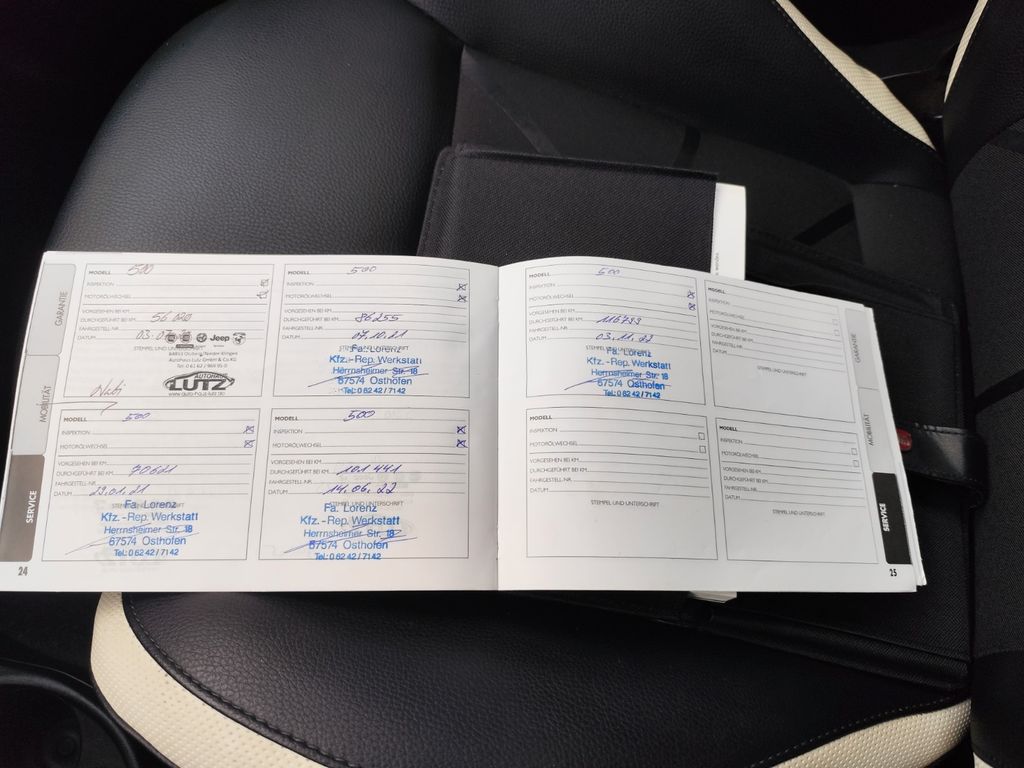 GARANTIE
MOBILITÄT
SERVICE
24
MODELL 500
INSPEKTION
MOTORÖLWECHSEL
VORGESEHEN BEI KM
DURCHGEFÜHRT BEI KM
FAHRGESTELL-NR.
DATUM 03.
Jeep
Autohaus Lutz GmbH & Co.KG
AUTOHAUS
LUTZ
www.auto-haus-lutz.de
MODELL 500
INSPEKTION
MOTORÖLWECHSEL
VORGESEHEN BEI KM
DURCHGEFÜHRT BEI KM 70611
FAHRGESTELL-NR.
DATUM 29.01.21
STEMPEL UND UNTERSCHRIFT
Fa. Lorenz
Kfz.-Rep. Werkstatt
Herrnsheimer Str. 18
67574 Osthofen
Tel.: 0 62 42 / 71 42
MODELL 500
INSPEKTION
MOTORÖLWECHSEL
VORGESEHEN BEI KM
DURCHGEFÜHRT BEI KM 86255
FAHRGESTELL-NR.
DATUM 07.10.21
STEMPEL UND UNTERSCHRIFT
Fa. Lorenz
Kfz.-Rep. Werkstatt
Herrnsheimer Str. 18
67574 Osthofen
Tel.: 0 62 42 / 71 42
MODELL 500
INSPEKTION
MOTORÖLWECHSEL
VORGESEHEN BEI KM
DURCHGEFÜHRT BEI KM 101 441
FAHRGESTELL-NR.
DATUM 14.06.22
STEMPEL UND UNTERSCHRIFT
Fa. Lorenz
Kfz.-Rep. Werkstatt
Herrnsheimer Str. 18
67574 Osthofen
Tel.: 0 62 42 / 71 42
MODELL 500
INSPEKTION
MOTORÖLWECHSEL
VORGESEHEN BEI KM
DURCHGEFÜHRT BEI KM 116733
FAHRGESTELL-NR.
DATUM 03.11.22
STEMPEL UND UNTERSCHRIFT
Fa. Lorenz
Kfz.-Rep. Werkstatt
Herrnsheimer Str. 18
67574 Osthofen
Tel.: 0 62 42 / 71 42
MODELL
INSPEKTION
MOTORÖLWECHSEL
VORGESEHEN BEI KM
DURCHGEFÜHRT BEI KM
FAHRGESTELL-NR.
DATUM
STEMPEL UND UNTERSCHRIFT
MODELL
INSPEKTION
MOTORÖLWECHSEL
VORGESEHEN BEI KM
DURCHGEFÜHRT BEI KM
FAHRGESTELL-NR.
DATUM
STEMPEL UND UNTERSCHRIFT
MODELL
INSPEKTION
MOTORÖLWECHSEL
VORGESEHEN BEI KM
DURCHGEFÜHRT BEI KM
FAHRGESTELL-NR.
DATUM
STEMPEL UND UNTERSCHRIFT
GARANTIE
MOBILITÄT
SERVICE
25